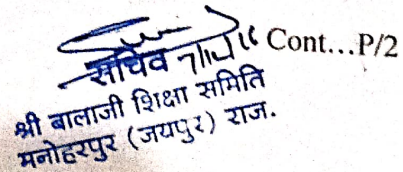 सचिव Cont...P/2
श्री बालाजी शिक्षा समिति
मनोहरपुर (जयपुर) राज.